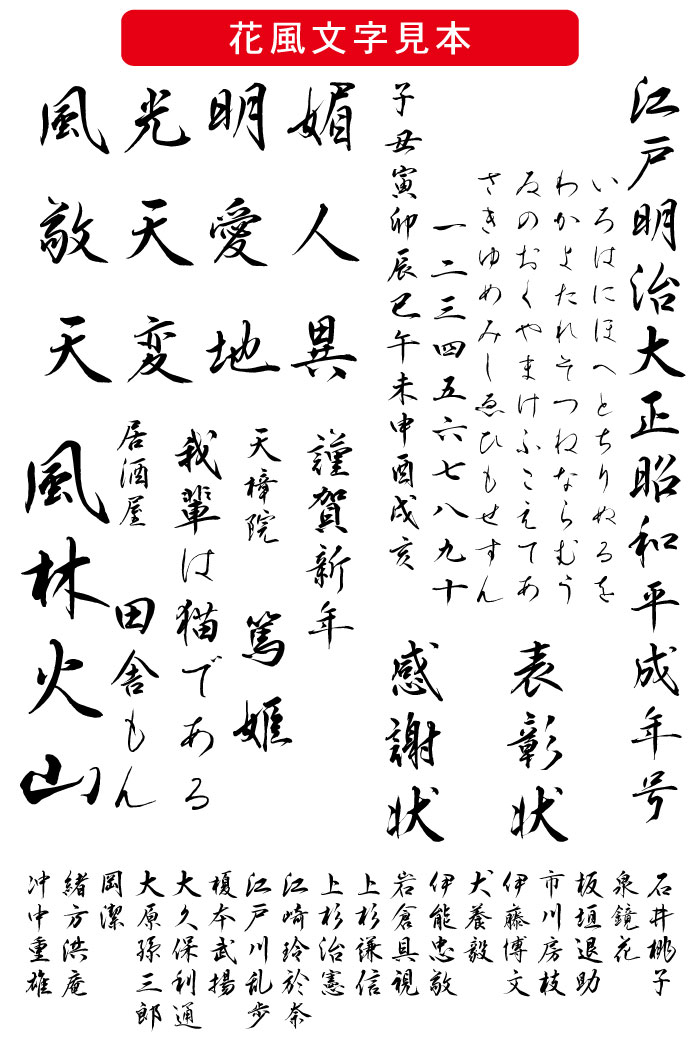 花風文字見本
江戸明治大正昭和平成年号
いろはにほへとちりぬるを
わかよたれそつねならむう
ゐのおくやまけふこえてあ
さきゆめみしゑひもせすん
一二三四五六七八九十
子丑寅卯辰巳午未申酉戌亥
表彰状
感謝状
媚人異
明愛地
光天変
風敬天
謹賀新年
天樟院 篤姫
我輩は猫である
居酒屋 田舎もん
風林火山
石井桃子
泉鏡花
板垣退助
市川房枝
伊藤博文
犬養毅
伊能忠敬
岩倉具視
上杉謙信
上杉治憲
江崎玲於奈
江戸川乱歩
榎本武揚
大久保利通
大原孫三郎
岡潔
緒方洪庵
冲中重雄